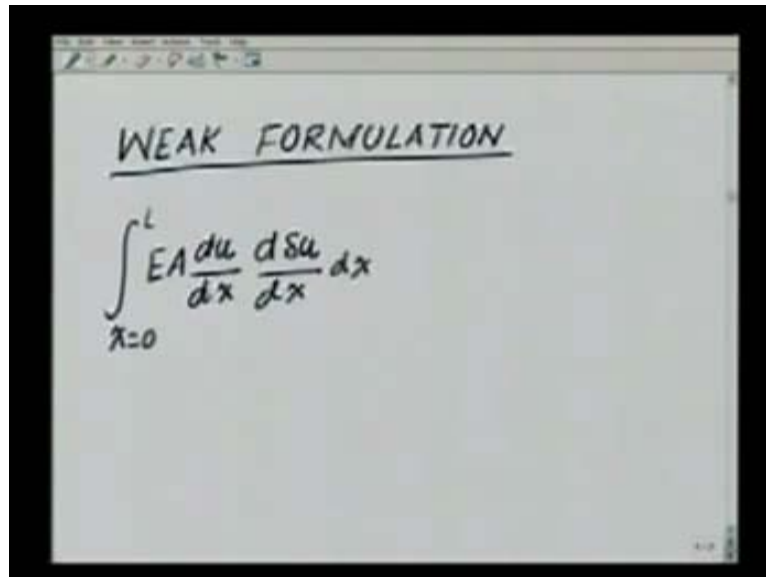 WEAK FORMULATION
∫_{x=0}^{L} EA \frac{du}{dx} \frac{dδu}{dx} dx